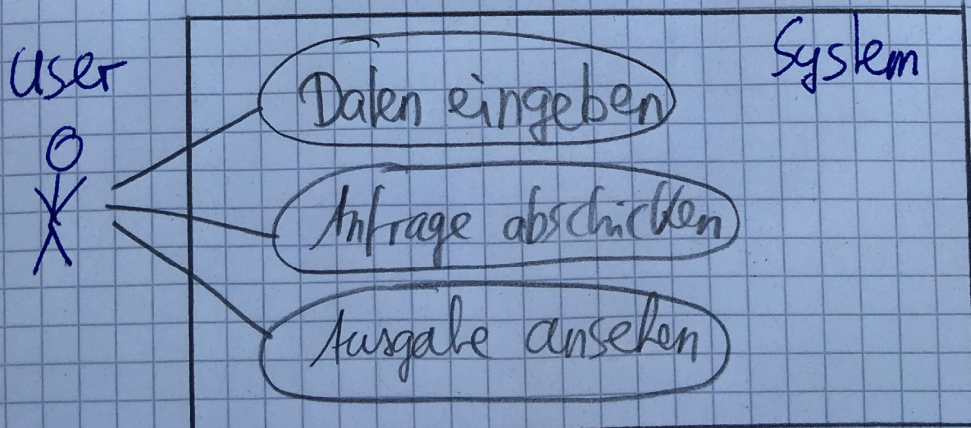 User
System
Daten eingeben
Anfrage abschicken
Ausgabe ansehen